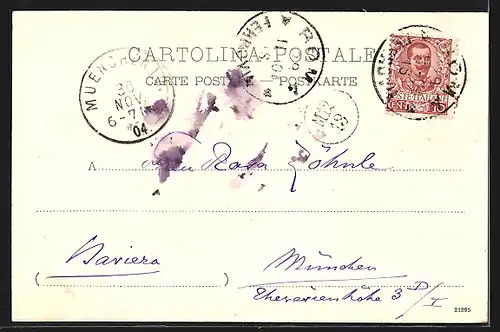 CARTOLINA POSTALE
CARTE POSTALE — POSTKARTE
MUENCHEN
30
NOV
6-7
04
ROMA
FERROVIA
POSTE ITALIANE
CENT. 10
A Rosa Köhnle
(Baviera) München
Theresienhöhe 3 D/I
21395